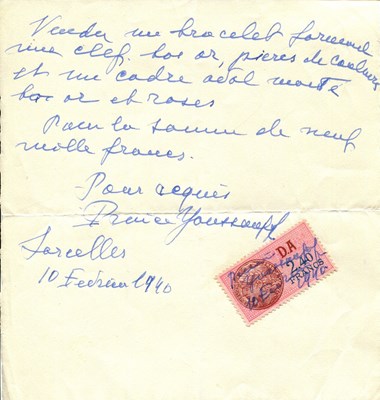 Vendu un bracelet formant
une clef. bas or, pieres de couleurs
et un cadre
bas or et roses
Pour la somme de neuf
mille francs.
Pour acquis
Prince Youssoupoff
Sarcelles
10 Fevrier 1940
DA
2,40
FRANCS
1940